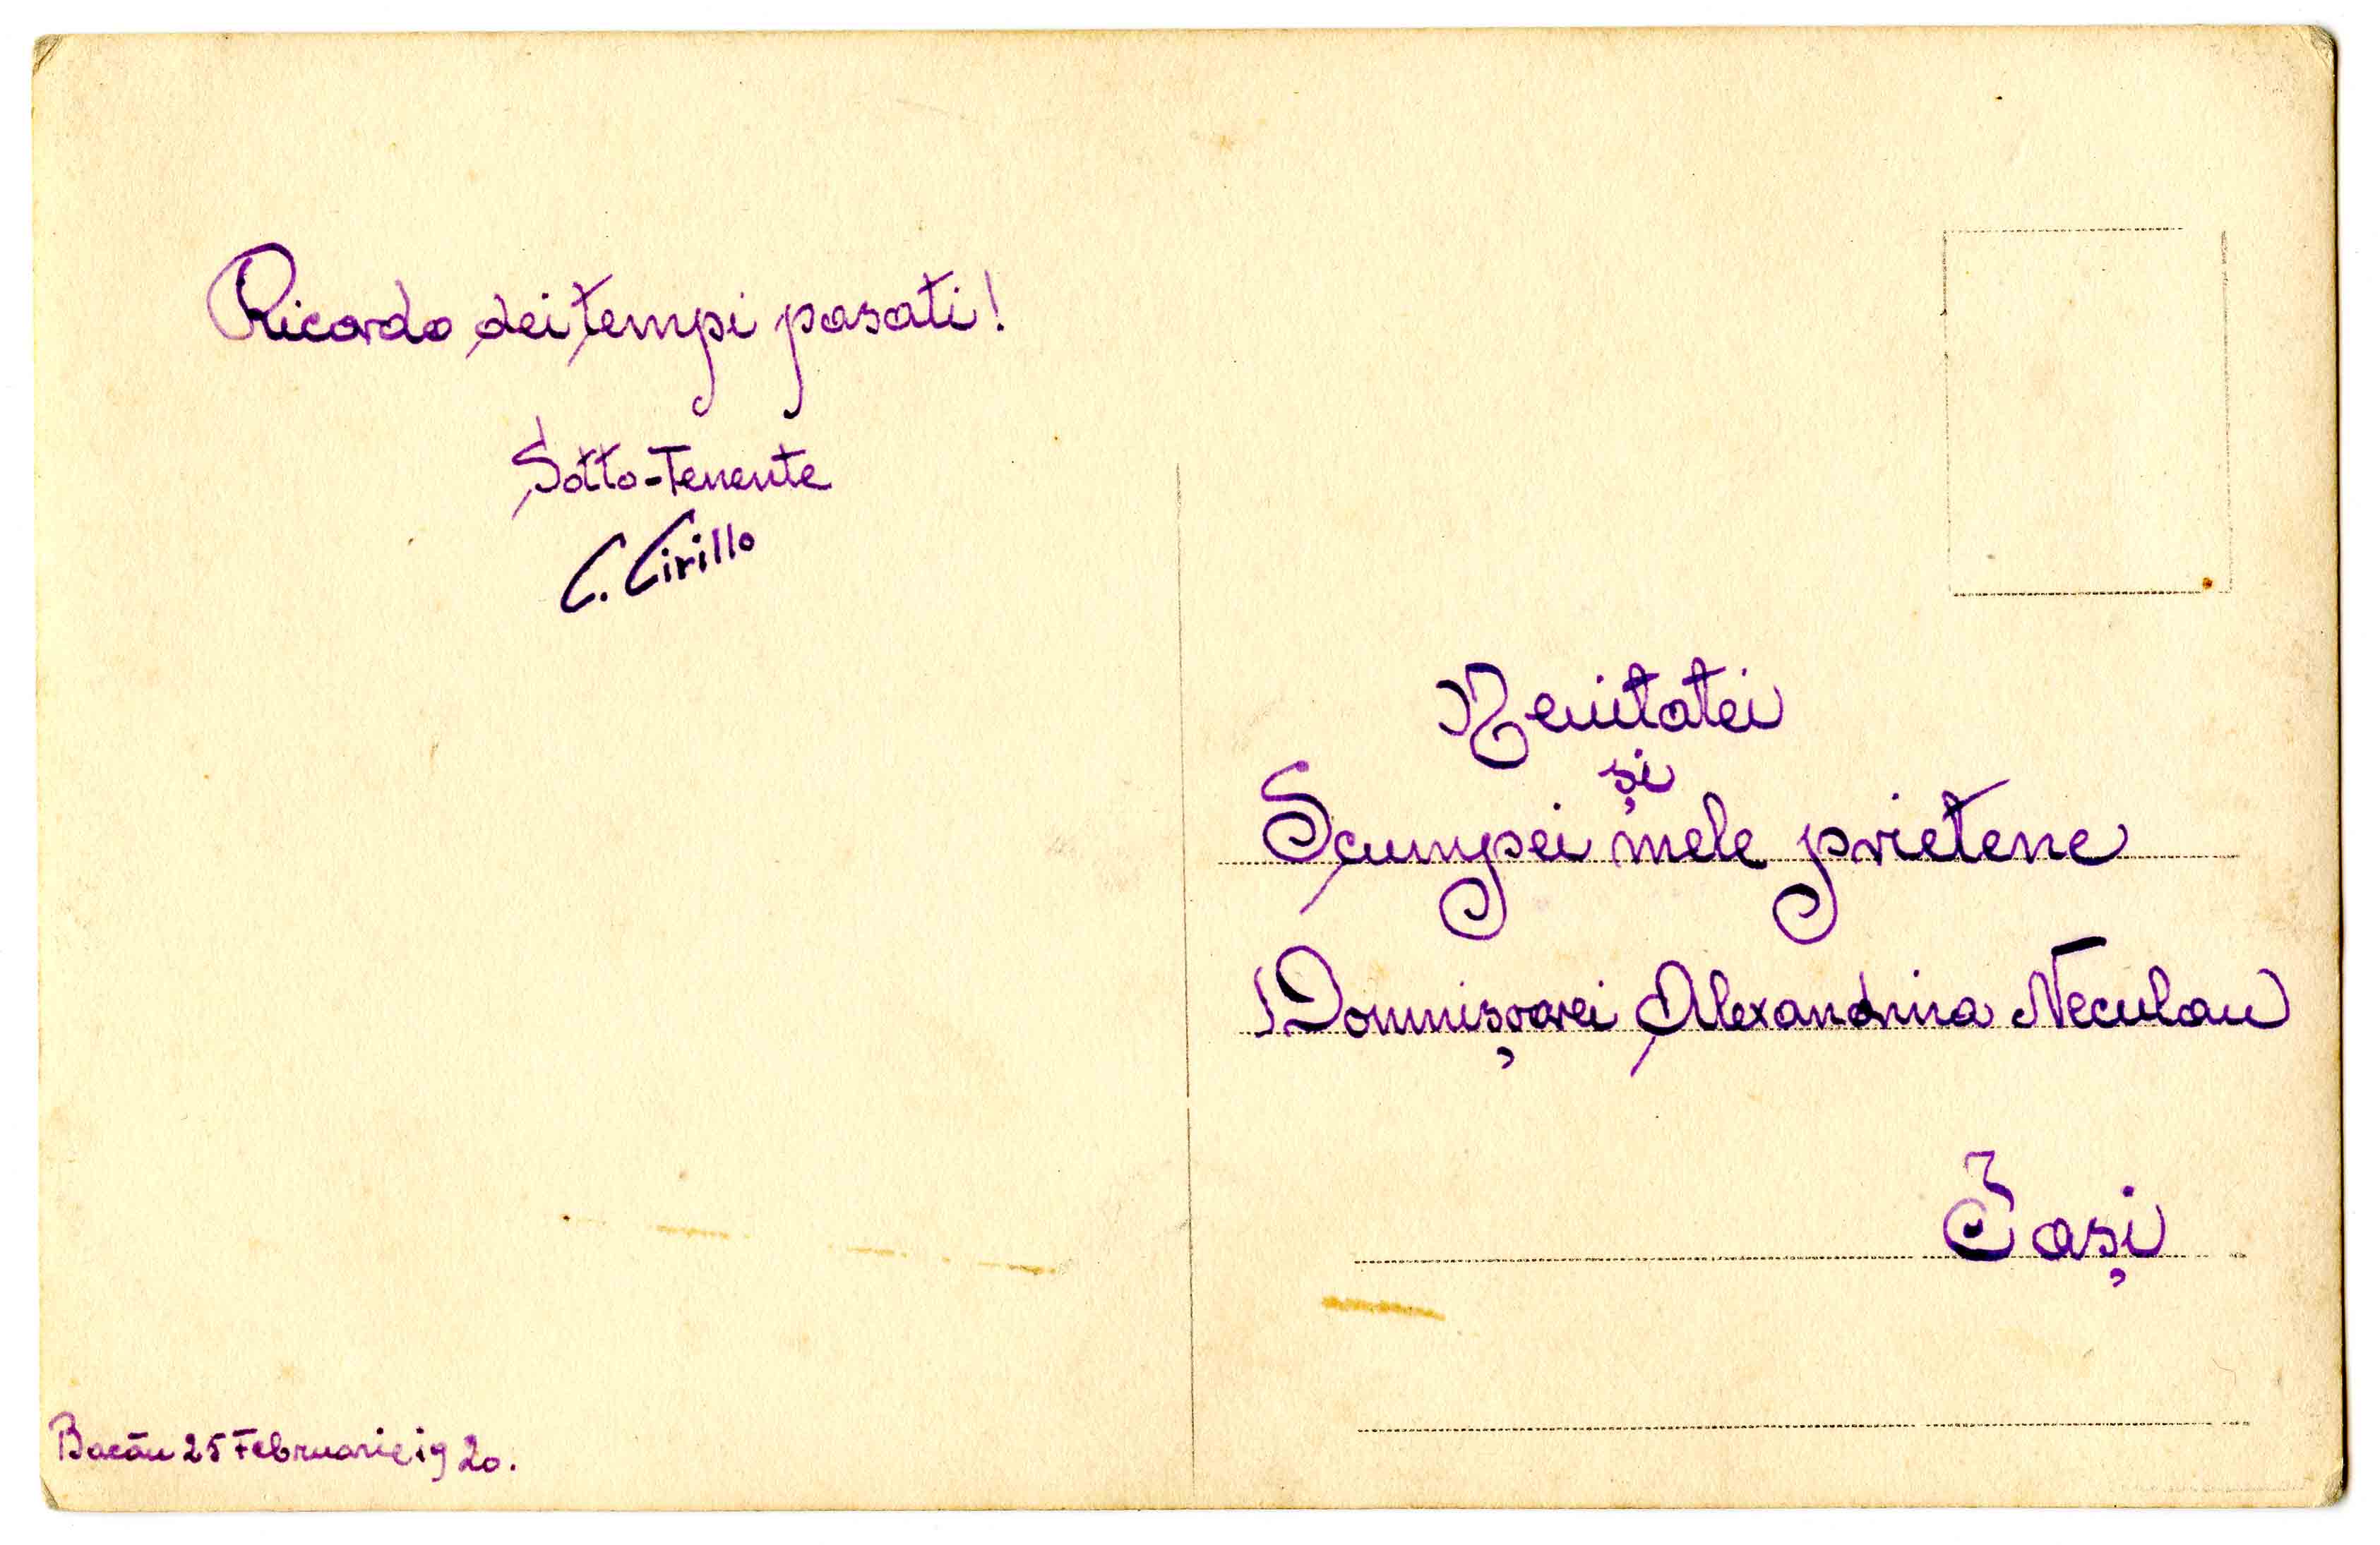 Ricordo dei tempi pasati!
Sotto-Tenente
C. Cirillo
Bacău 25 Februarie 1920.
și
Scumpei mele prietene
Domnișoarei Alexandrina Neculau
Iași